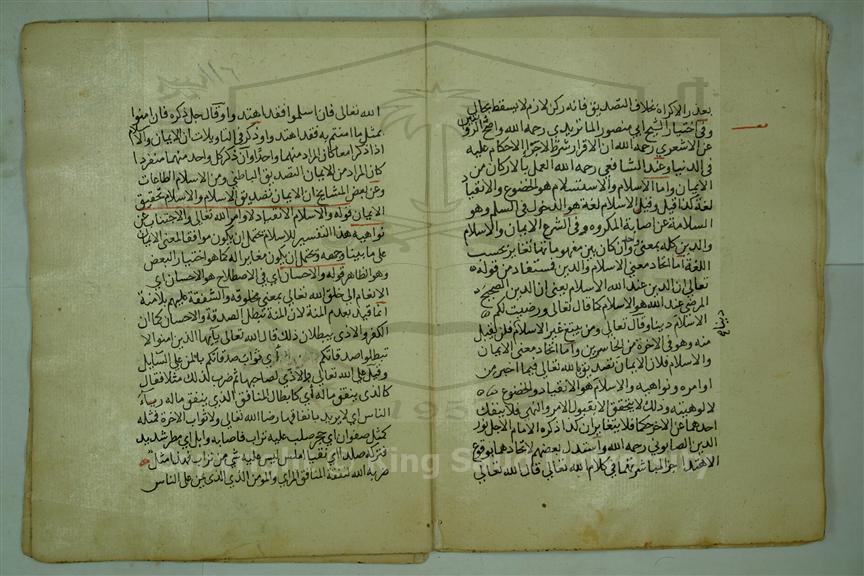 بعذر الاكراه بخلاف التصديق فانه ركن لازم لا يسقط بحال
وفي اختيار الشيخ ابي منصور الماتريدي رحمه الله واصح الروايتين
عن الاشعري رحمه الله ان الاقرار شرط لاجراء الاحكام عليه
في الدنيا وعند الشافعي رحمه الله العمل بالاركان من
الايمان واما الاسلام والاستسلام هو الخضوع والانقياد
لغة كذا قيل وقيل الاسلام لغة هو الدخول في السلم وهو
السلامة عن اصابة المكروه وفي الشرع الايمان والاسلام
والدين كله بمعنى وان كان بين مفهوماتها تغاير بحسب
اللغة اما اتحاد معنى الاسلام والدين فمستفاد من قوله
تعالى ان الدين عند الله الاسلام يعني ان الدين الصحيح
المرضي عند الله هو الاسلام كما قال تعالى ورضيت لكم
الاسلام دينا وقال تعالى ومن يبتغ غير الاسلام فلن يقبل
دينا
منه وهو في الاخرة من الخاسرين واما اتحاد معنى الايمان
والاسلام فلان الايمان تصديق بالله تعالى فيما اخبر من
اوامره ونواهيه والاسلام هو الانقياد والخضوع
لالوهيته وذلك لا يتحقق الا بقبول الامر والنهي فلا ينفك
احدهما عن الاخر حكما فلا يتغايران كذا ذكره الامام الاجل نور
الدين الصابوني رحمه الله واستدل بعضهم لاتحادهما بوقوع
الاهتداء جزاء لمباشرتهما في كلام الله تعالى قال الله تعالى
الله تعالى فان اسلموا فقد اهتدوا وقال جل ذكره فان امنوا
بمثل ما امنتم به فقد اهتدوا وذكر في التاويلات ان الايمان والاسلام
اذا ذكرا معا كان المراد منهما واحدا وان ذكر كل واحد منهما منفردا
كان المراد من الايمان التصديق الباطني ومن الاسلام الطاعات
وعن بعض المشايخ ان الايمان تصديق الاسلام والاسلام تحقيق
الايمان قوله والاسلام الانقياد لاوامر الله تعالى والاجتناب عن
نواهيه هذا التفسير للاسلام يحتمل ان يكون موافقا لمعنى الايمان
على ما بينا وجهه ويحتمل ان يكون مغايرا له كما هو اختيار البعض
وهو الظاهر قوله والاحسان اي في الاصطلاح هو الاحسان اي
الانعام الى خلق الله تعالى بمعنى مخلوقه والشفقة عليهم بلا منة
انما قيد بعدم المنة لان المنة تبطل الصدقة والاحسان كما ان
الكفر والاذى يبطلان ذلك قال الله تعالى يا ايها الذين امنوا لا
تبطلوا صدقاتكم اي ثواب صدقاتكم بالمن على السائل
وقيل على الله تعالى والاذى لصاحبها ثم ضرب لذلك مثلا فقال
كالذي ينفق ماله اي كابطال المنافق الذي ينفق ماله رياء
الناس اي لا يريد بانفاقها رضا الله تعالى ولا ثواب الاخرة فمثله
كمثل صفوان اي حجر صلب عليه تراب فاصابه وابل اي مطر شديد
فتركه صلدا اي نقيا املس ليس عليه شيء من تراب فهذا مثل
ضربه الله لنفقة المنافق المرائي والمؤمن الذي يمن على الناس